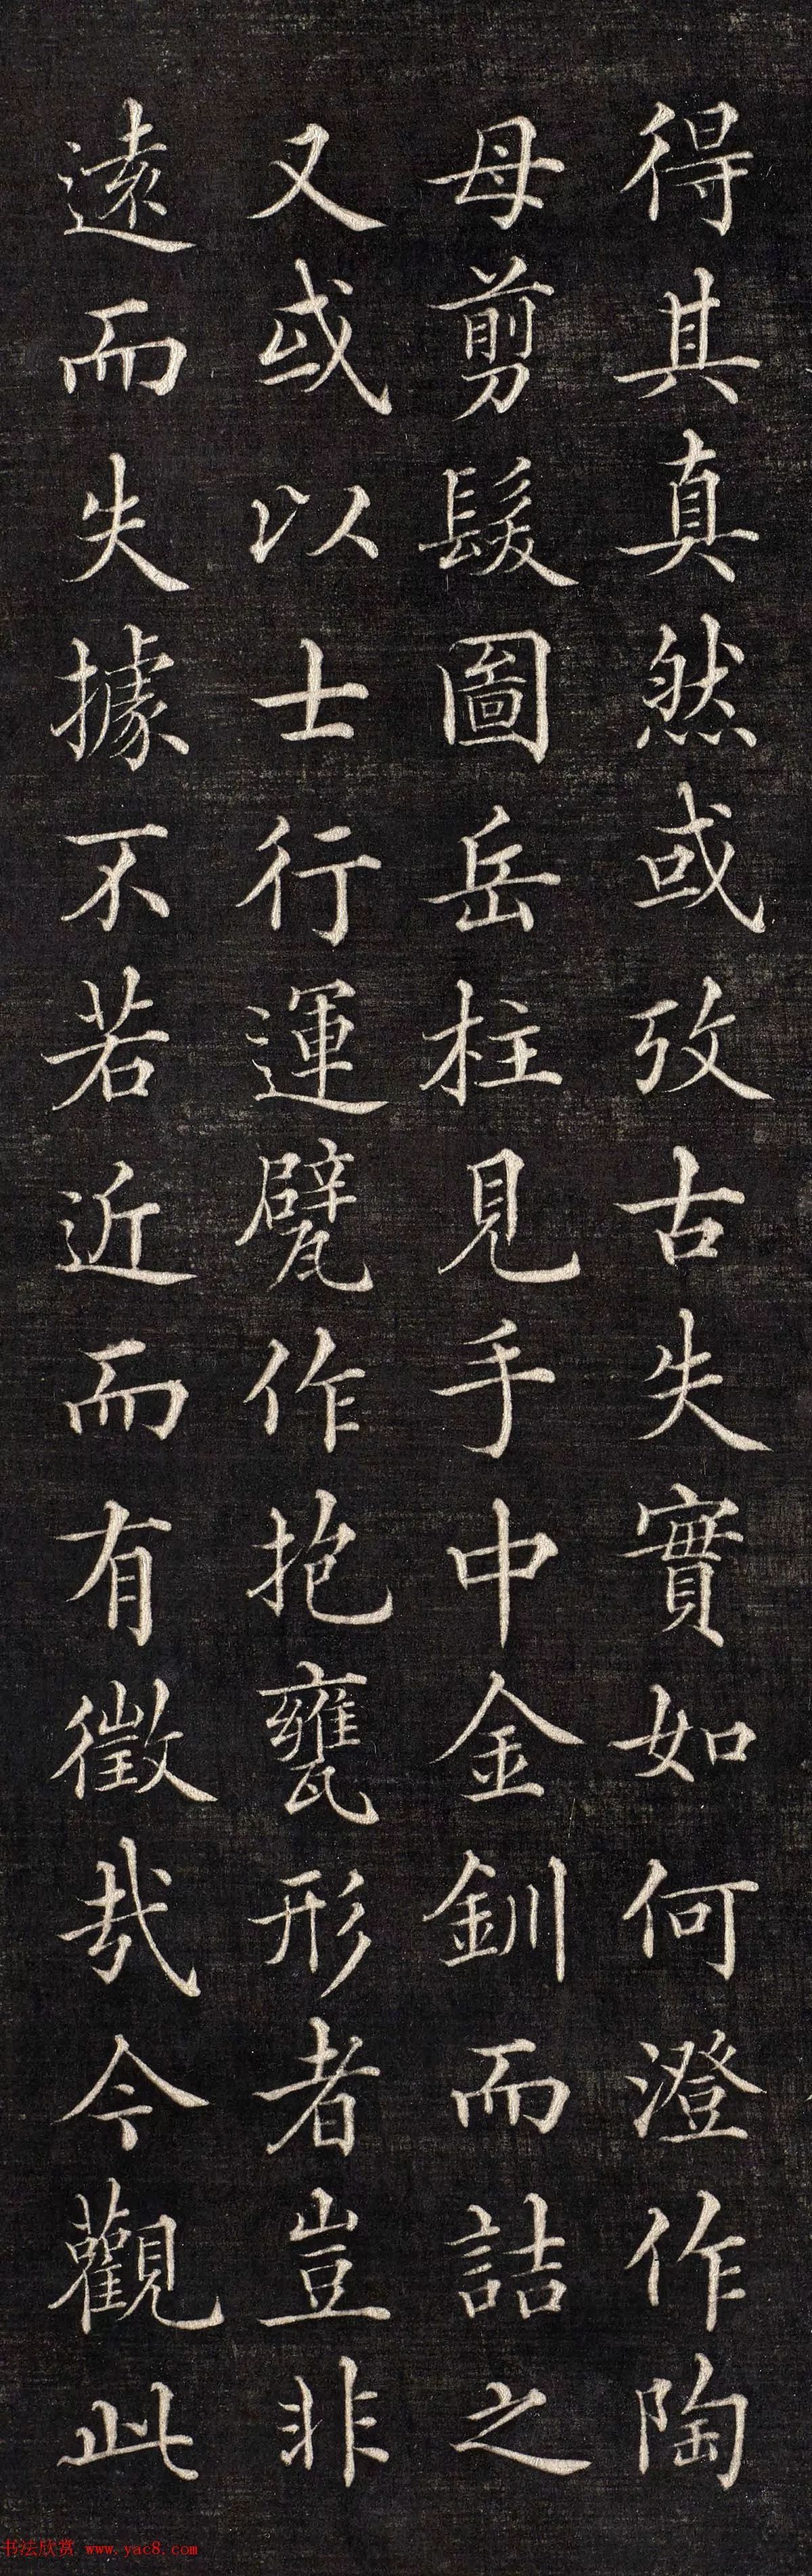 得其真然或攷古失實如何澄作陶
母剪髮圖岳柱見手中金釧而詰之
又或以士行運甓作抱甕形者豈非
遠而失據不若近而有徵哉今觀此
书法欣赏 www.yac8.com